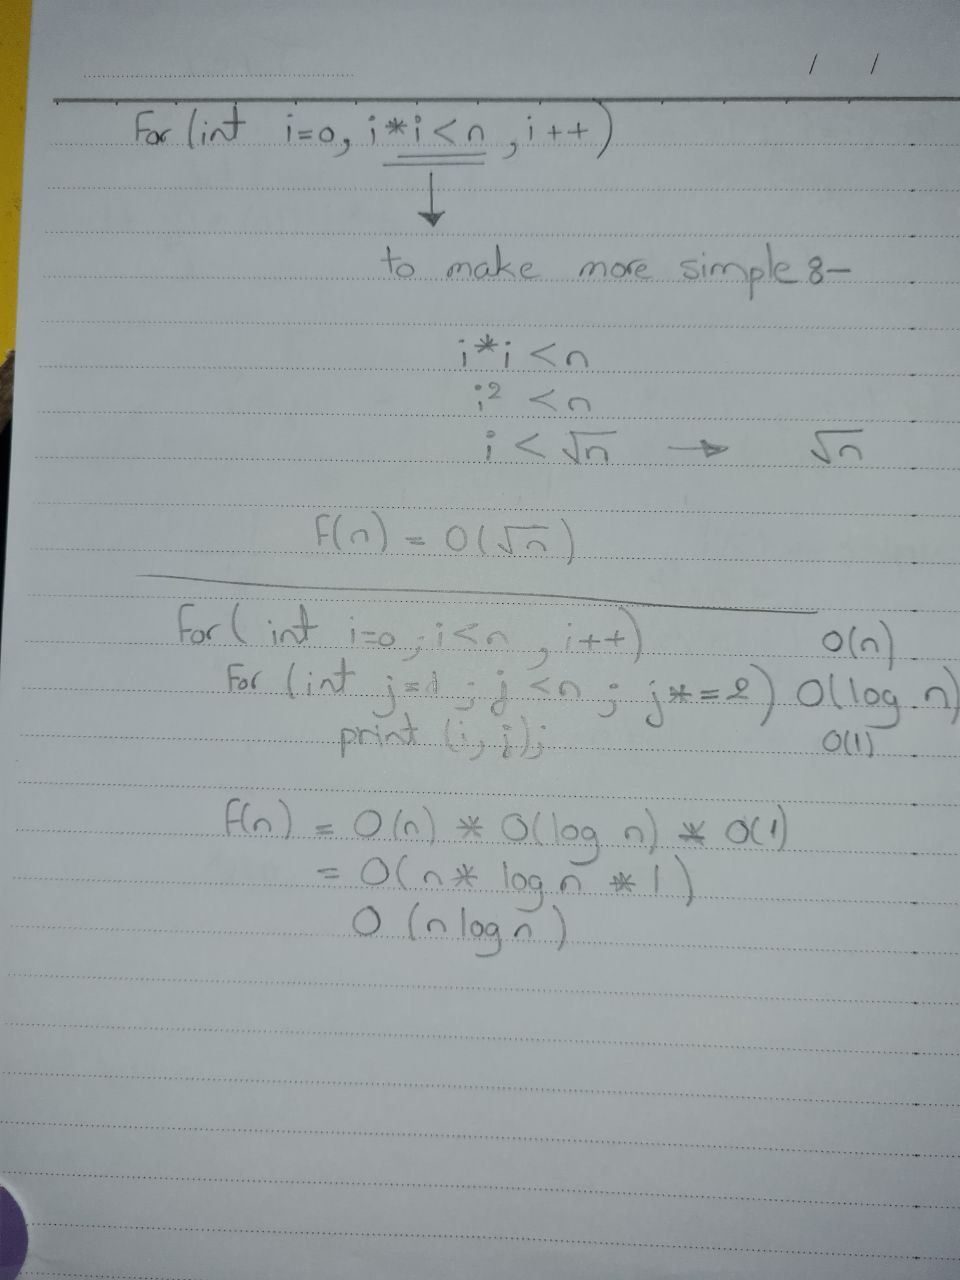 / /
For (int i=0, i*i<n , i++)
to make more simple 8-
i*i <n
i² <n
i < √n → √n
F(n) = O(√n)
For ( int i=0 ; i<n , i++) O(n)
For (int j=1 ; j <n ; j*=2) O(log n)
print (i, j); O(1)
F(n) = O(n) * O(log n) * O(1)
= O(n* log n * 1)
O (n log n)